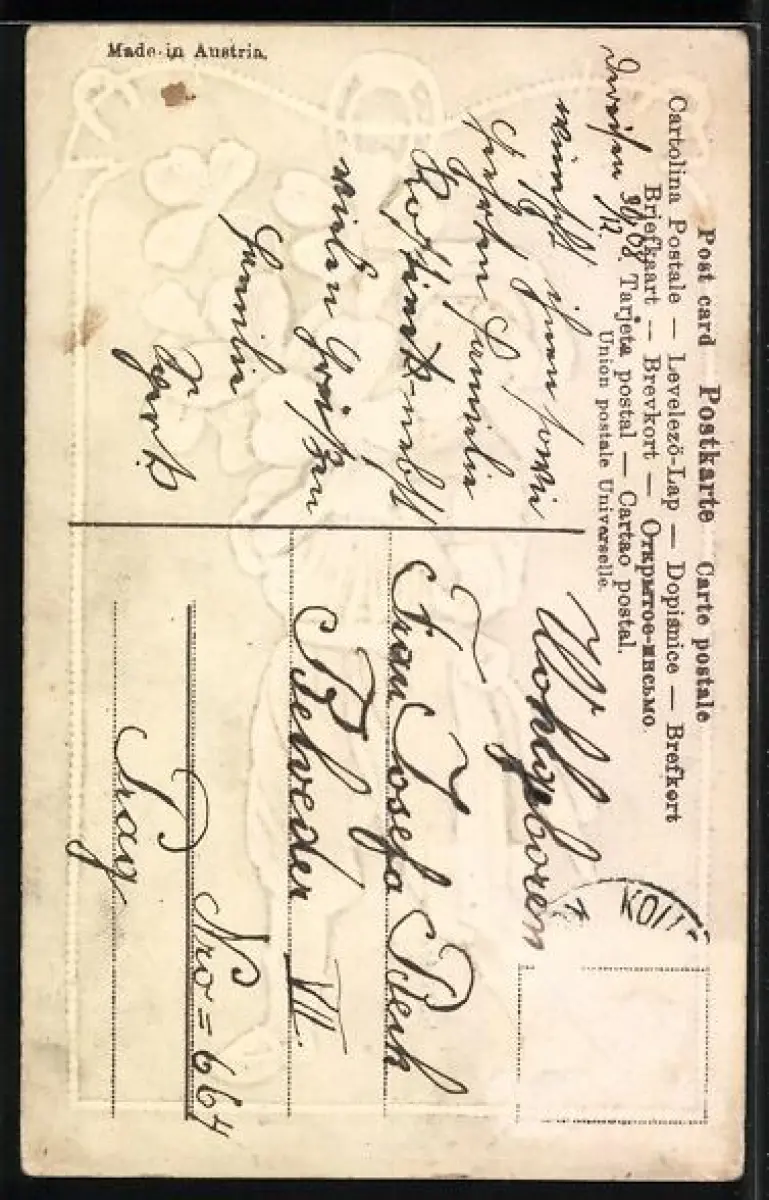 Made in Austria.
Post card Postkarte Carte postale
Cartolina Postale — Levelező-Lap — Dopisnice — Brefkort
Briefkaart — Brevkort — Открытое-письмо.
Tarjeta postal — Cartao postal.
Union postale Universelle.
30/12. 08
wünscht Ihnen sowie
Familie
nebst
vielen Grüßen
Familie
Wohlgeboren
Frau Josefa
Belveder VII.
Nro = 664
Prag
KOLI